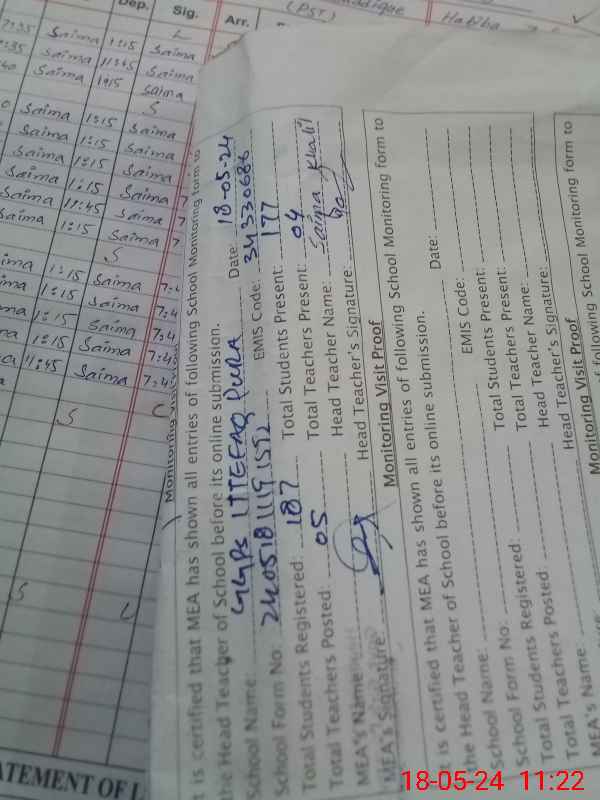 Dep.
Sig.
Arr.
(PST)
Habiba
7:35 Saima 1:15 Saima
:35 Saima 11:45 Saima
40 Saima 1:15 Saima
Saima 1:15 Saima
Saima 1:15 Saima
Saima 1:15 Saima
Saima 1:15 Saima
Saima 11:45 Saima
Saima 1:15 Saima
1:15 Saima 7:4
1:15 Saima 7:4
1:15 Saima 7:4
1:15 Saima 7:43
11:45 Saima 7:45
t is certified that MEA has shown all entries of following School Monitoring form to
the Head Teacher of School before its online submission.
School Name: GGPS ITTEFAQ PURA Date: 18-05-24
School Form No: 24051811191592 EMIS Code: 34330686
Total Students Registered: 187 Total Students Present: 177
Total Teachers Posted: 05 Total Teachers Present: 04
MEA's Name: Head Teacher Name: Saima Khalil
MEA's Signature: Head Teacher's Signature:
Monitoring Visit Proof
t is certified that MEA has shown all entries of following School Monitoring form to
the Head Teacher of School before its online submission.
School Name: Date:
School Form No: EMIS Code:
Total Students Registered: Total Students Present:
Total Teachers Posted Total Teachers Present:
MEA's Name: Head Teacher Name:
Head Teacher's Signature:
Monitoring Visit Proof
of following School Monitoring form to
TATEMENT OF L
18-05-24 11:22